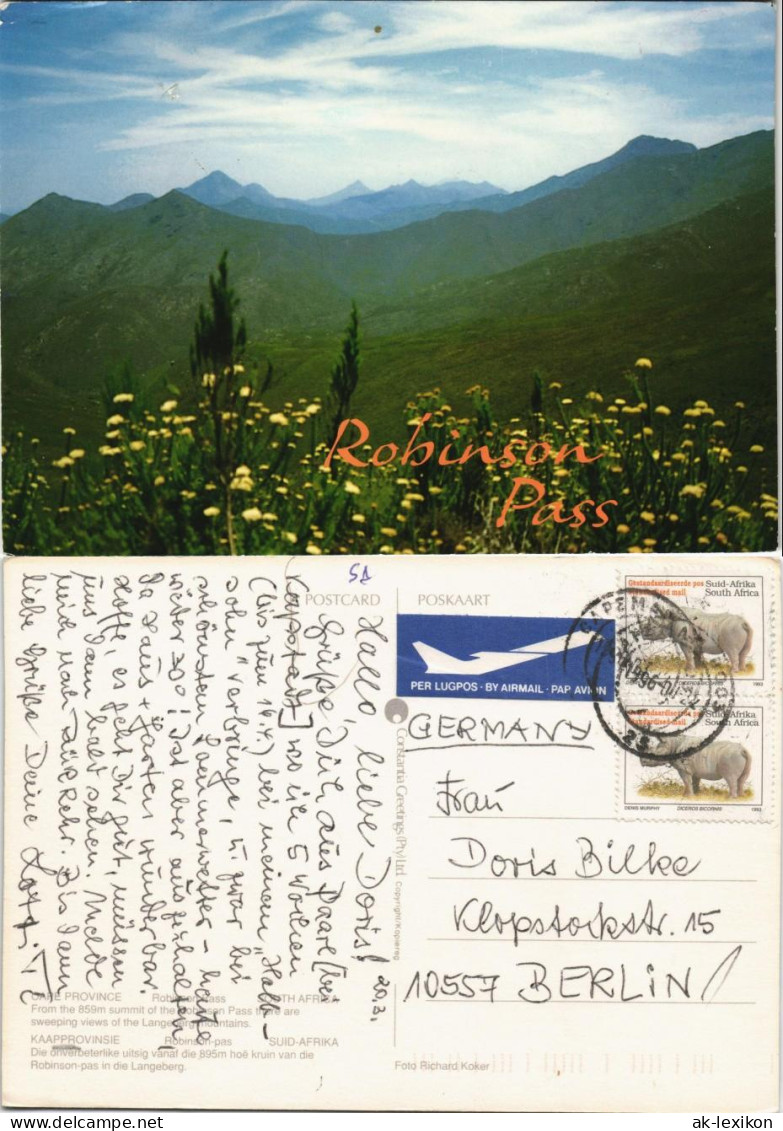 Robinson
Pass
POSTCARD
POSKAART
PER LUGPOS · BY AIRMAIL · PAR AVION
Gestandaardiseerde pos
Standardised mail
Suid-Afrika
South Africa
1993
Gestandaardiseerde pos
Standardised mail
Suid-Afrika
South Africa
DENIS MURPHY
DICEROS BICORNIS
1993
Constantia Greetings (Pty) Ltd. Copyright/Kopiereg
GERMANY
Frau
Doris Bilke
Klopstockstr. 15
10557 BERLIN
20.3.
Hallo liebe Doris!
Grüße Dich aus Paarl [bei
Kapstadt] wo ich 5 Wochen
(bis zum 14.4.) bei meinem "Halb-
sohn" verbringe, u. zwar bei
schönstem Sommerwetter – heute
wieder 30°! Ist aber auszuhalten,
da Haus + Garten wunderbar.
Hoffe, es geht Dir gut, müssen
uns dann bald sehen. Melde
mich nach Rückkehr. Bis dann
liebe Grüße Deine
CAPE PROVINCE Robinson Pass SOUTH AFRICA
From the 859m summit of the Robinson Pass there are
sweeping views of the Langeberg mountains.
KAAPPROVINSIE Robinson-pas SUID-AFRIKA
Die onverbeterlike uitsig vanaf die 895m hoë kruin van die
Robinson-pas in die Langeberg.
Foto Richard Koker
ak-lexikon